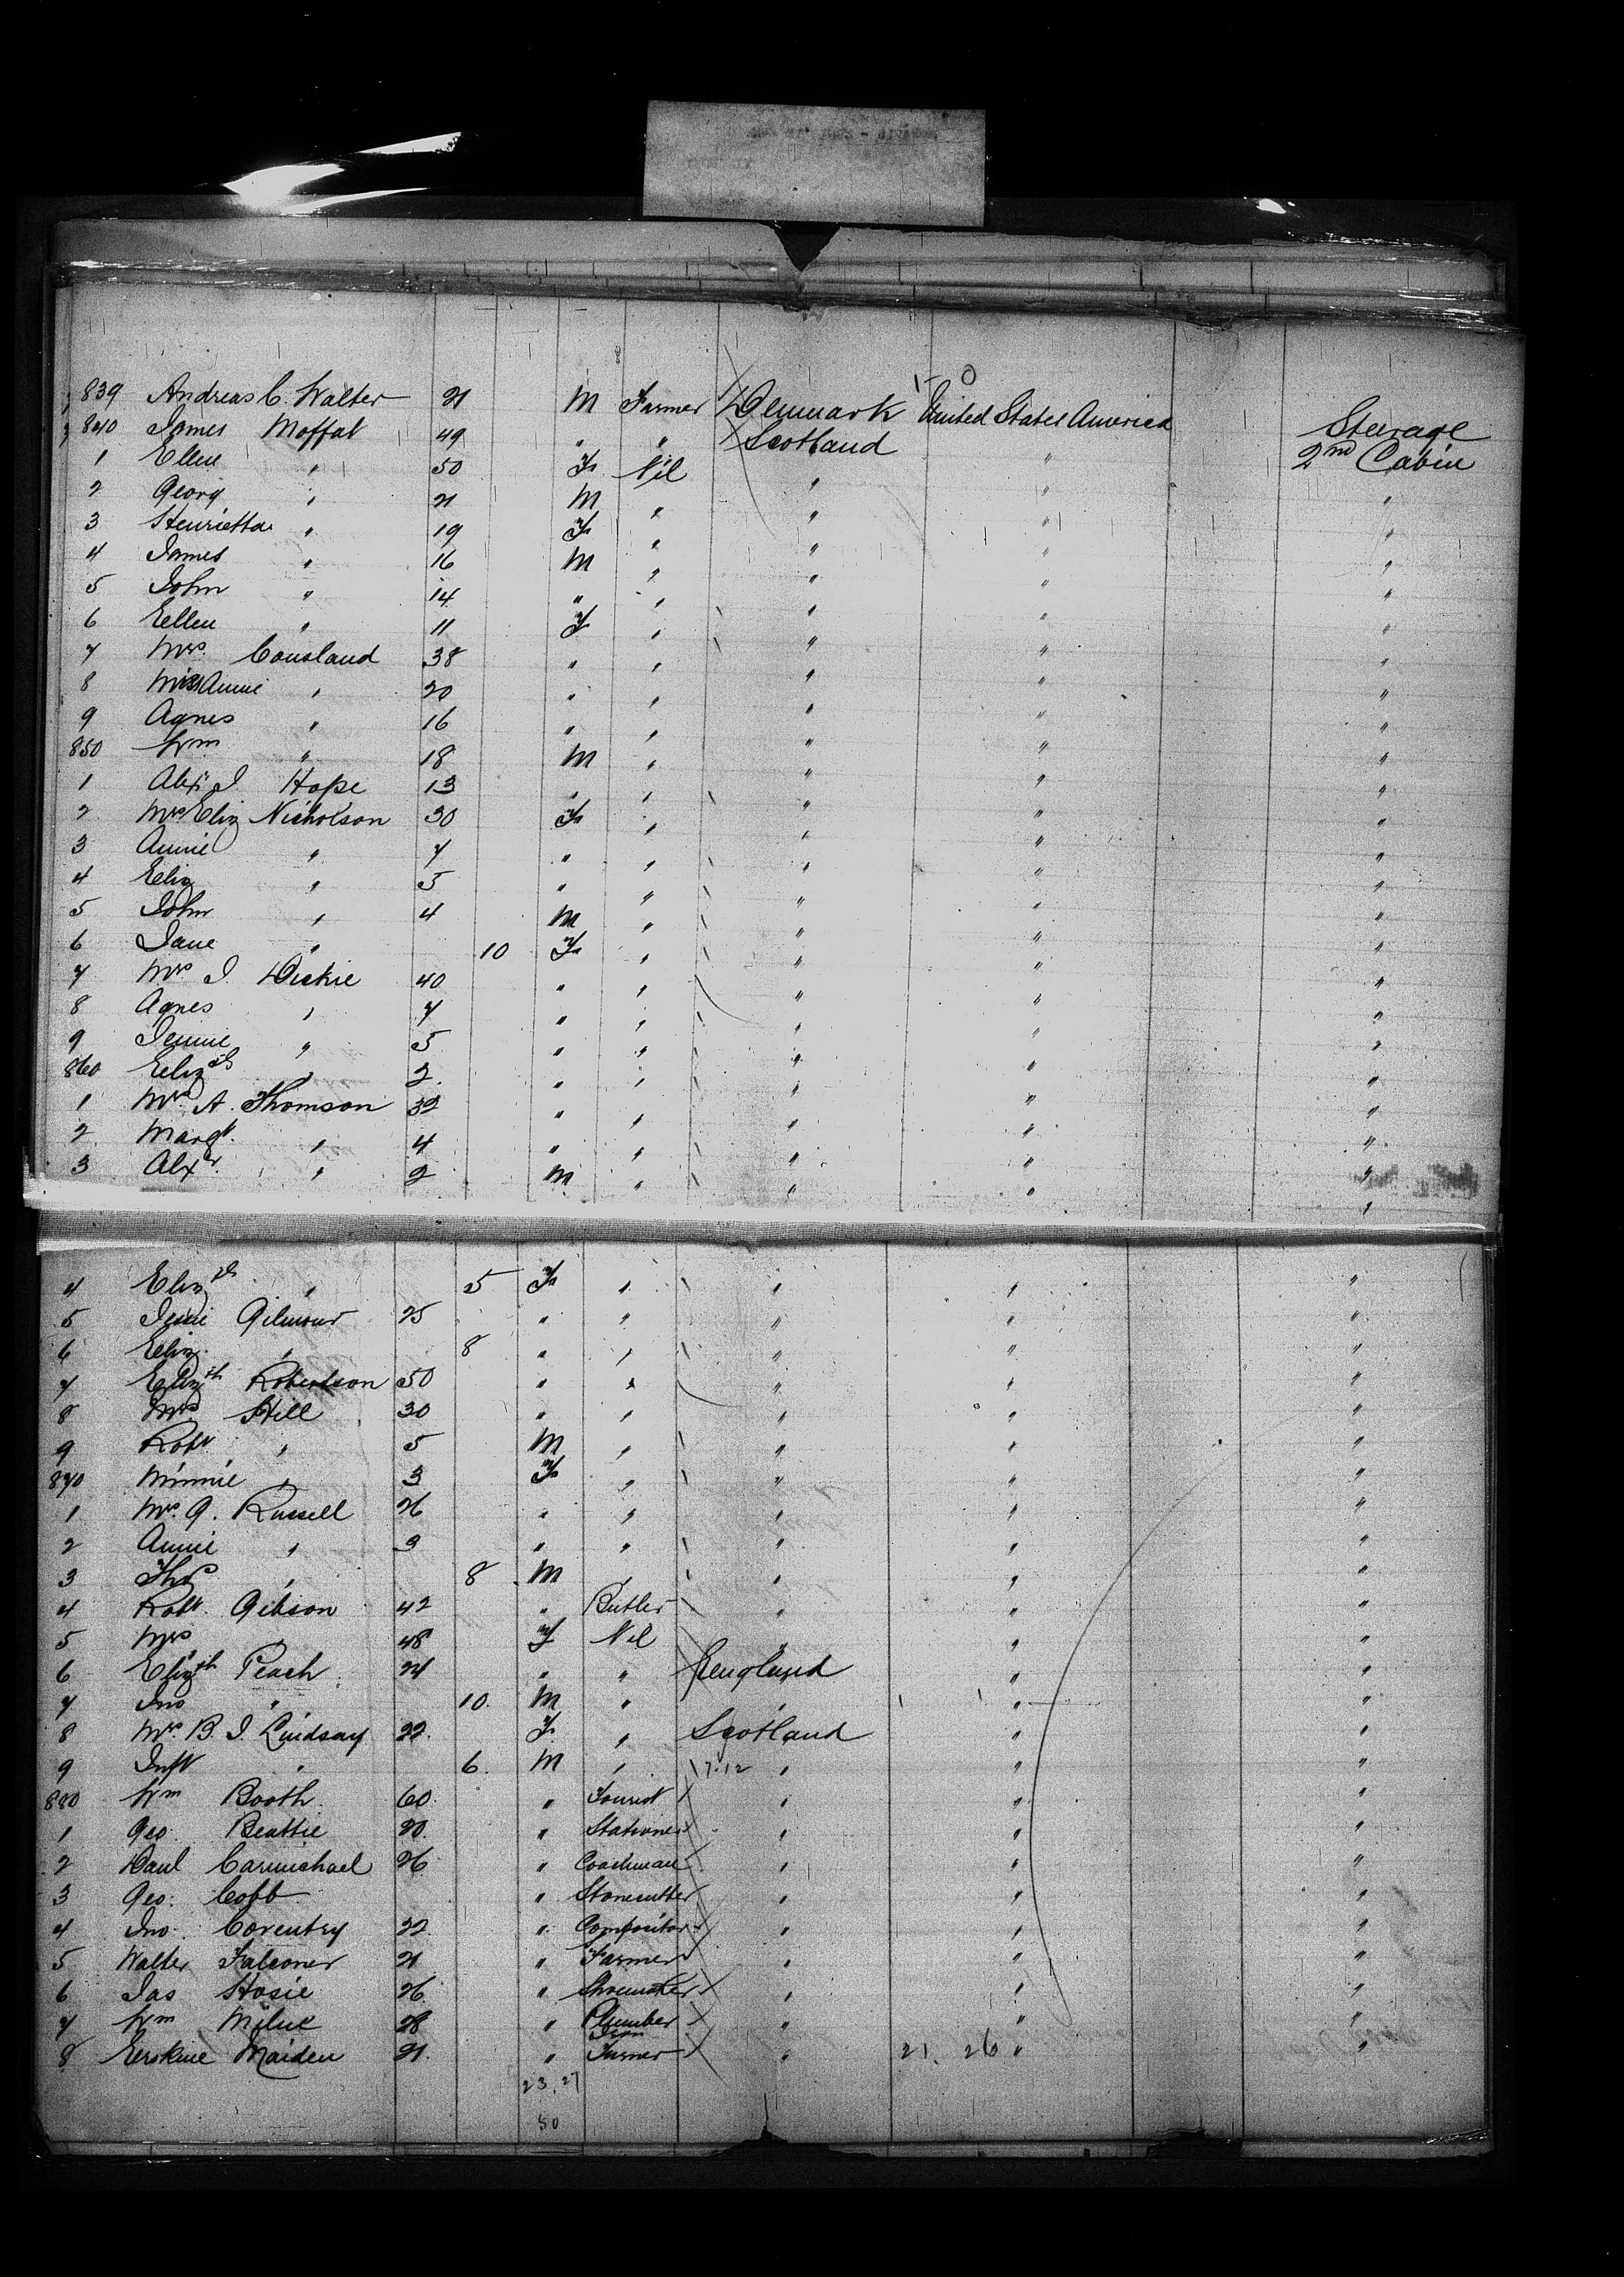 1- 0
839 Andreas C. Walter 21 M Farmer Denmark United States America Steerage
840 James Moffat 49 " " Scotland " 2nd Cabin
1 Ellen " 50 F Nil " " "
2 Georg " 21 M " " " "
3 Henrietta " 19 F " " " "
4 James " 16 M " " " "
5 John " 14 " " " " "
6 Ellen " 11 F " " " "
7 Mrs. Cousland 38 " " " " "
8 Miss Annie " 20 " " " " "
9 Agnes " 16 " " " " "
850 Wm " 18 M " " " "
1 Alexr J. Hope 13 " " " " "
2 Mrs Eliz Nicholson 30 F " " " "
3 Annie " 7 " " " " "
4 Eliz " 5 " " " " "
5 John " 4 M " " " "
6 Jane " 10 F " " " "
7 Mrs J. Dickie 40 " " " " "
8 Agnes " 7 " " " " "
9 Jennie " 5 " " " " "
860 Elizth " 2 " " " " "
1 Mrs A. Thomson 32 " " " " "
2 Margt. " 4 " " " " "
3 Alxr. " 2 M " " " "
4 Elizth " 5 F " " " "
5 Gilmour 25 " " " " "
6 Eliz. " 8 " " " " "
7 Elizth Robertson 50 " " " " "
8 Mrs Hill 30 " " " " "
9 Robt " 5 M " " " "
870 Minnie " 3 F " " " "
1 Mrs. G. Russell 26 " " " " "
2 Annie " 3 " " " " "
3 Thos " 8 M " " " "
4 Robt. Gibson 42 " Butler " " "
5 Mrs " 48 F Nil " " "
6 Elizth Peach 24 " " England " "
7 Jno " 10. M " " " "
8 Mrs. B. J. Lindsay 22. F. " Scotland " "
9 Inft " 6. M " 17.12 " " "
880 Wm Booth 60. " Tourist " " "
1 Geo. Beattie 20. " Stationer " " "
2 Danl Carmichael 26 " Coachman " " "
3 Geo. Cobb " Stonecutter " " "
4 Jno. Coventry 22. " Compositor " " "
5 Walter Falconer 21 " Farmer " " "
6 Jas Hosie 26. " Shoemaker " " "
7 Wm Milne 28 " Plumber " " "
8 Erskine Maiden 21. " Iron Turner " 21. 26 " "
23.27
50